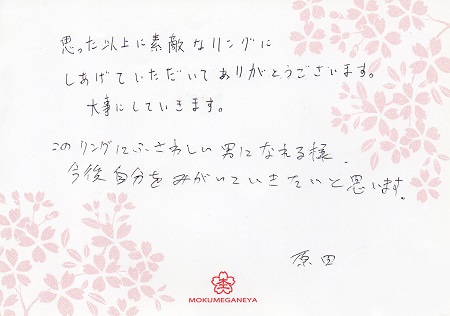 思った以上に素敵なリングに
しあげていただいてありがとうございます。
大事にしていきます。
このリングにふさわしい男になれる様、
今後自分をみがいていきたいと思います。
原田
MOKUMEGANEYA